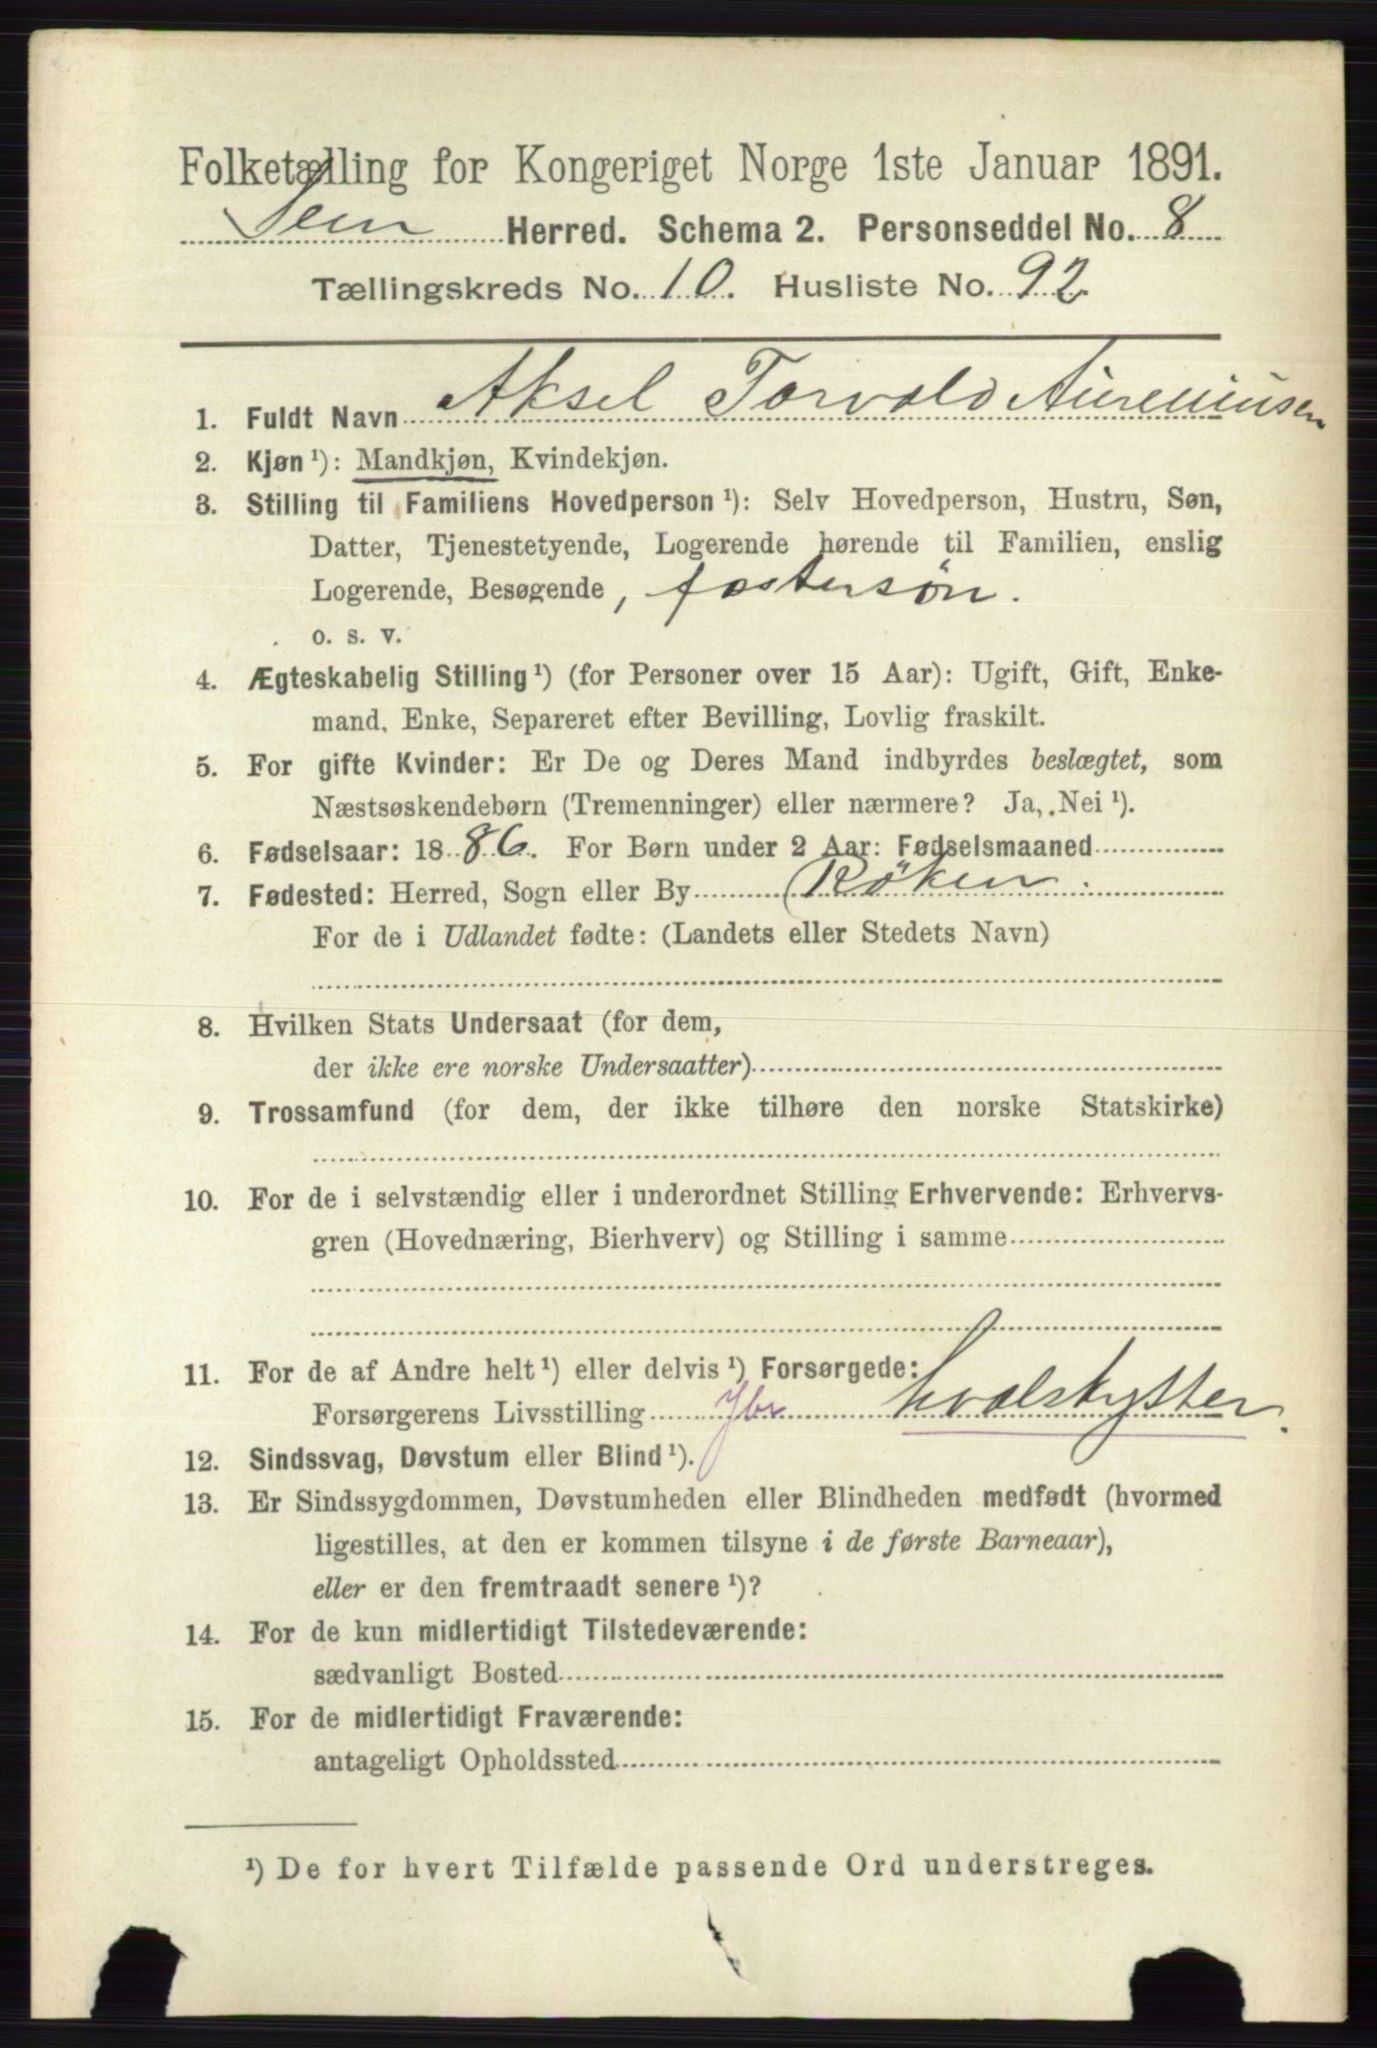 Folketælling for Kongeriget Norge 1ste Januar 1891.
Sem Herred. Schema 2. Personseddel No. 8
Tællingskreds No. 10. Husliste No. 92
1. Fuldt Navn Aksel Torvald
2. Kjøn ¹): Mandkjøn, Kvindekjøn.
3. Stilling til Familiens Hovedperson ¹): Selv Hovedperson, Hustru, Søn,
Datter, Tjenestetyende, Logerende hørende til Familien, enslig
Logerende, Besøgende, fostersøn.
o. s. v.
4. Ægteskabelig Stilling ¹) (for Personer over 15 Aar): Ugift, Gift, Enke-
mand, Enke, Separeret efter Bevilling, Lovlig fraskilt.
5. For gifte Kvinder: Er De og Deres Mand indbyrdes beslægtet, som
Næstsøskendebørn (Tremenninger) eller nærmere? Ja, Nei ¹).
6. Fødselsaar: 1886. For Børn under 2 Aar: Fødselsmaaned
7. Fødested: Herred, Sogn eller By Röken
For de i Udlandet fødte: (Landets eller Stedets Navn)
8. Hvilken Stats Undersaat (for dem,
der ikke ere norske Undersaatter)
9. Trossamfund (for dem, der ikke tilhøre den norske Statskirke)
10. For de i selvstændig eller i underordnet Stilling Erhvervende: Erhvervs-
gren (Hovednæring, Bierhverv) og Stilling i samme
11. For de af Andre helt ¹) eller delvis ¹) Forsørgede:
Forsørgerens Livsstilling hvalskytter.
12. Sindssvag, Døvstum eller Blind ¹).
13. Er Sindssygdommen, Døvstumheden eller Blindheden medfødt (hvormed
ligestilles, at den er kommen tilsyne i de første Barneaar),
eller er den fremtraadt senere ¹)?
14. For de kun midlertidigt Tilstedeværende:
sædvanligt Bosted
15. For de midlertidigt Fraværende:
antageligt Opholdssted
¹) De for hvert Tilfælde passende Ord understreges.